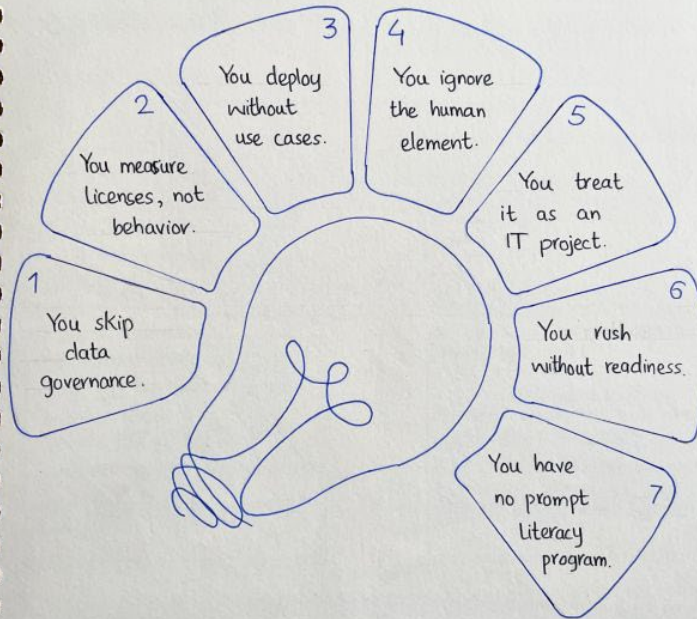 1
You skip
data
governance.
2
You measure
licenses, not
behavior.
3
You deploy
without
use cases.
4
You ignore
the human
element.
5
You treat
it as an
IT project.
6
You rush
without readiness.
7
You have
no prompt
literacy
program.